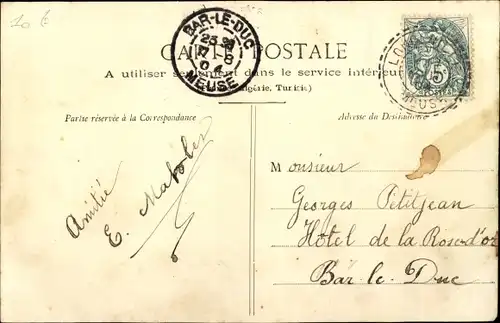 10 €
BAR-LE-DUC
MEUSE
CARTE POSTALE
A utiliser seulement dans le service intérieur
Algérie, Tunisie)
Partie réservée à la Correspondance
Adresse du Destinataire
MEUSE
5
Amitié
E.
Monsieur
Georges Petitjean
Hôtel de la Rose d'or
Bar-le-Duc